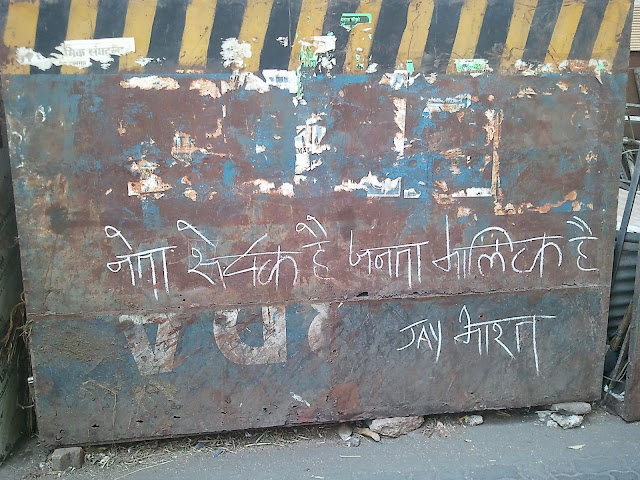 नेता सेवक है जनता मालिक है
JAY भारत